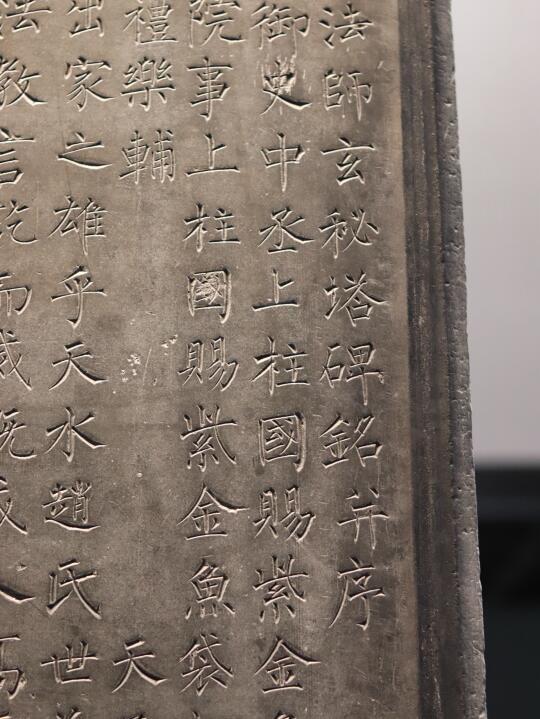 法師玄秘塔碑銘并序
御史中丞上柱國賜紫金
院事上柱國賜紫金魚袋
禮樂輔 天
出家之雄乎天水趙氏世
教言